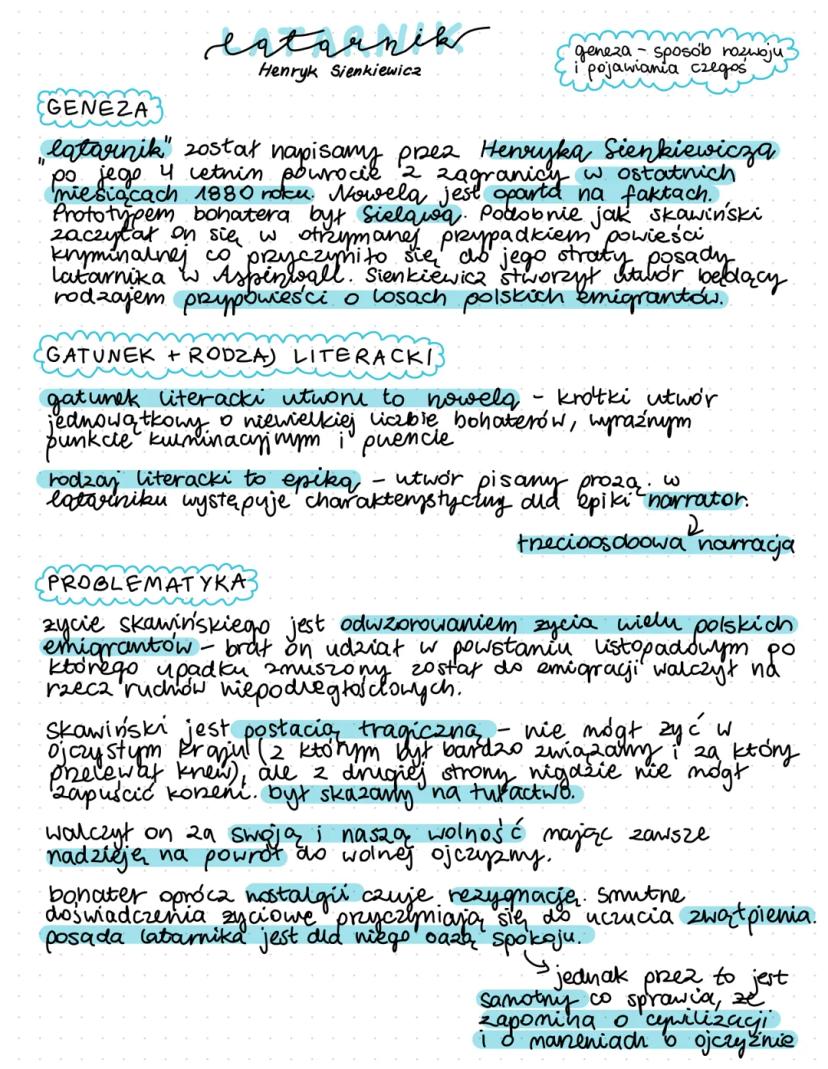 LATARNIK
latarnik
Henryk Sienkiewicz
geneza - sposób rozwoju
i pojawiania czegoś
GENEZA
"latarnik" został napisany przez Henryka Sienkiewicza
po jego 4 letnim powrocie z zagranicy w ostatnich
miesiącach 1880 roku. Nowela jest oparta na faktach.
Prototypem bohatera był Sielawa. Podobnie jak skawiński
zaczytał on się w otrzymanej przypadkiem powieści
kryminalnej co przyczyniło się do jego straty posady
latarnika w Aspinwall. Sienkiewicz stworzył utwór będący
rodzajem przypowieści o losach polskich emigrantów.
GATUNEK + RODZAJ LITERACKI
gatunek literacki utworu to nowela - krótki utwór
jednowątkowy o niewielkiej liczbie bohaterów, wyraźnym
punkcie kulminacyjnym i puencie
rodzaj literacki to epika - utwór pisany prozą. w
latarniku występuje charakterystyczny dla epiki narrator.
trzecioosdoowa narracja
PROBLEMATYKA
życie skawińskiego jest odwzorowaniem życia wielu polskich
emigrantów - brał on udział w powstaniu listopadowym po
którego upadku zmuszony został do emigracji walczył na
rzecz ruchów niepodległościowych.
skawiński jest postacią tragiczną - nie mógł żyć w
ojczystym kraju (z którym był bardzo związany i za który
przelewał krew), ale z drugiej strony nigdzie nie mógł
zapuścić korzeni. był skazany na tułactwo.
walczył on za swoją i naszą wolność mając zawsze
nadzieję na powrót do wolnej ojczyzny.
bohater oprócz nostalgii czuje rezygnację. smutne
doświadczenia życiowe przyczyniają się do uczucia zwątpienia.
posada latarnika jest dla niego oazą spokoju.
jednak przez to jest
samotny co sprawia, że
zapomina o cywilizacji
i o marzeniach o ojczyźnie